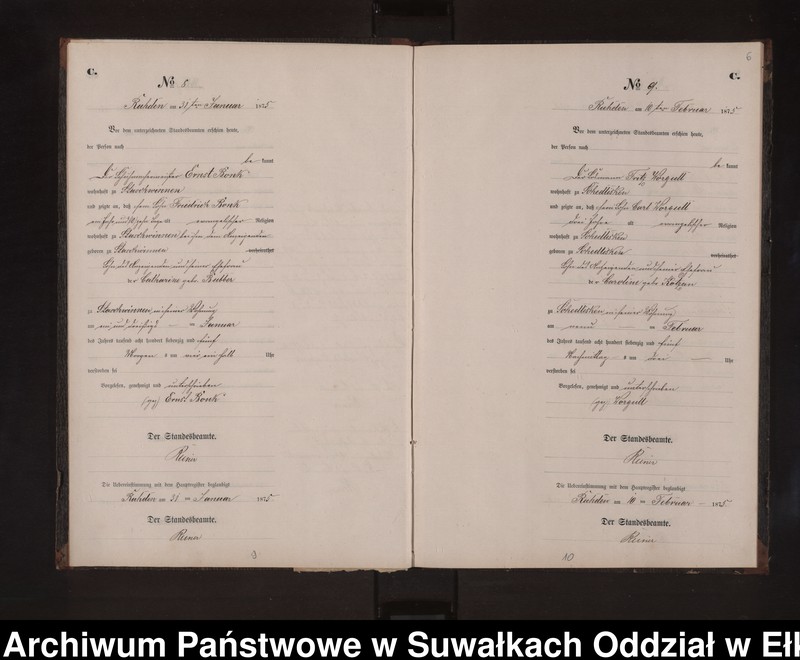 C.
№ 8.
Rühden am 31ten Januar 1875
Vor dem unterzeichneten Standesbeamten erschien heute,
der Person nach
be kannt
Ernst Bonk
wohnhaft zu Starckwinnen
und zeigte an, daß sein Sohn Friedrich Bonk
alt evangelischer Religion
wohnhaft zu Starckwinnen bei ihm dem Anzeigenden
geboren zu Starckwinnen verheirathet
Sohn des Anzeigenden und seiner Ehefrau
der Catharina geb.
zu Starckwinnen in seiner Wohnung
am ein und dreißigsten Januar
des Jahres tausend acht hundert siebenzig und fünf
Morgens um halb Uhr
verstorben sei
Vorgelesen, genehmigt und unterschrieben
(gez) Ernst Bonk
Der Standesbeamte.
Die Uebereinstimmung mit dem Hauptregister beglaubigt
Rühden am 31 ten Januar 1875
Der Standesbeamte.
9
6
C.
№ 9.
Rühden am 10ten Februar 1875
Vor dem unterzeichneten Standesbeamten erschien heute,
der Person nach
be kannt
Der Fritz Worgull
wohnhaft zu Schedlisken
und zeigte an, daß sein Sohn Carl Worgull
drei Jahre alt evangelischer Religion
wohnhaft zu Schedlisken
geboren zu Schedlisken verheirathet
Sohn des Anzeigenden und seiner Ehefrau
der Caroline geb.
zu Schedlisken in seiner Wohnung
am neun ten Februar
des Jahres tausend acht hundert siebenzig und fünf
Nachmittag s um drei Uhr
verstorben sei
Vorgelesen, genehmigt und unterschrieben
(gez) Worgull
Der Standesbeamte.
Die Uebereinstimmung mit dem Hauptregister beglaubigt
Rühden am 10 ten Februar 1875
Der Standesbeamte.
10
Archiwum Państwowe w Suwałkach Oddział w Ełk